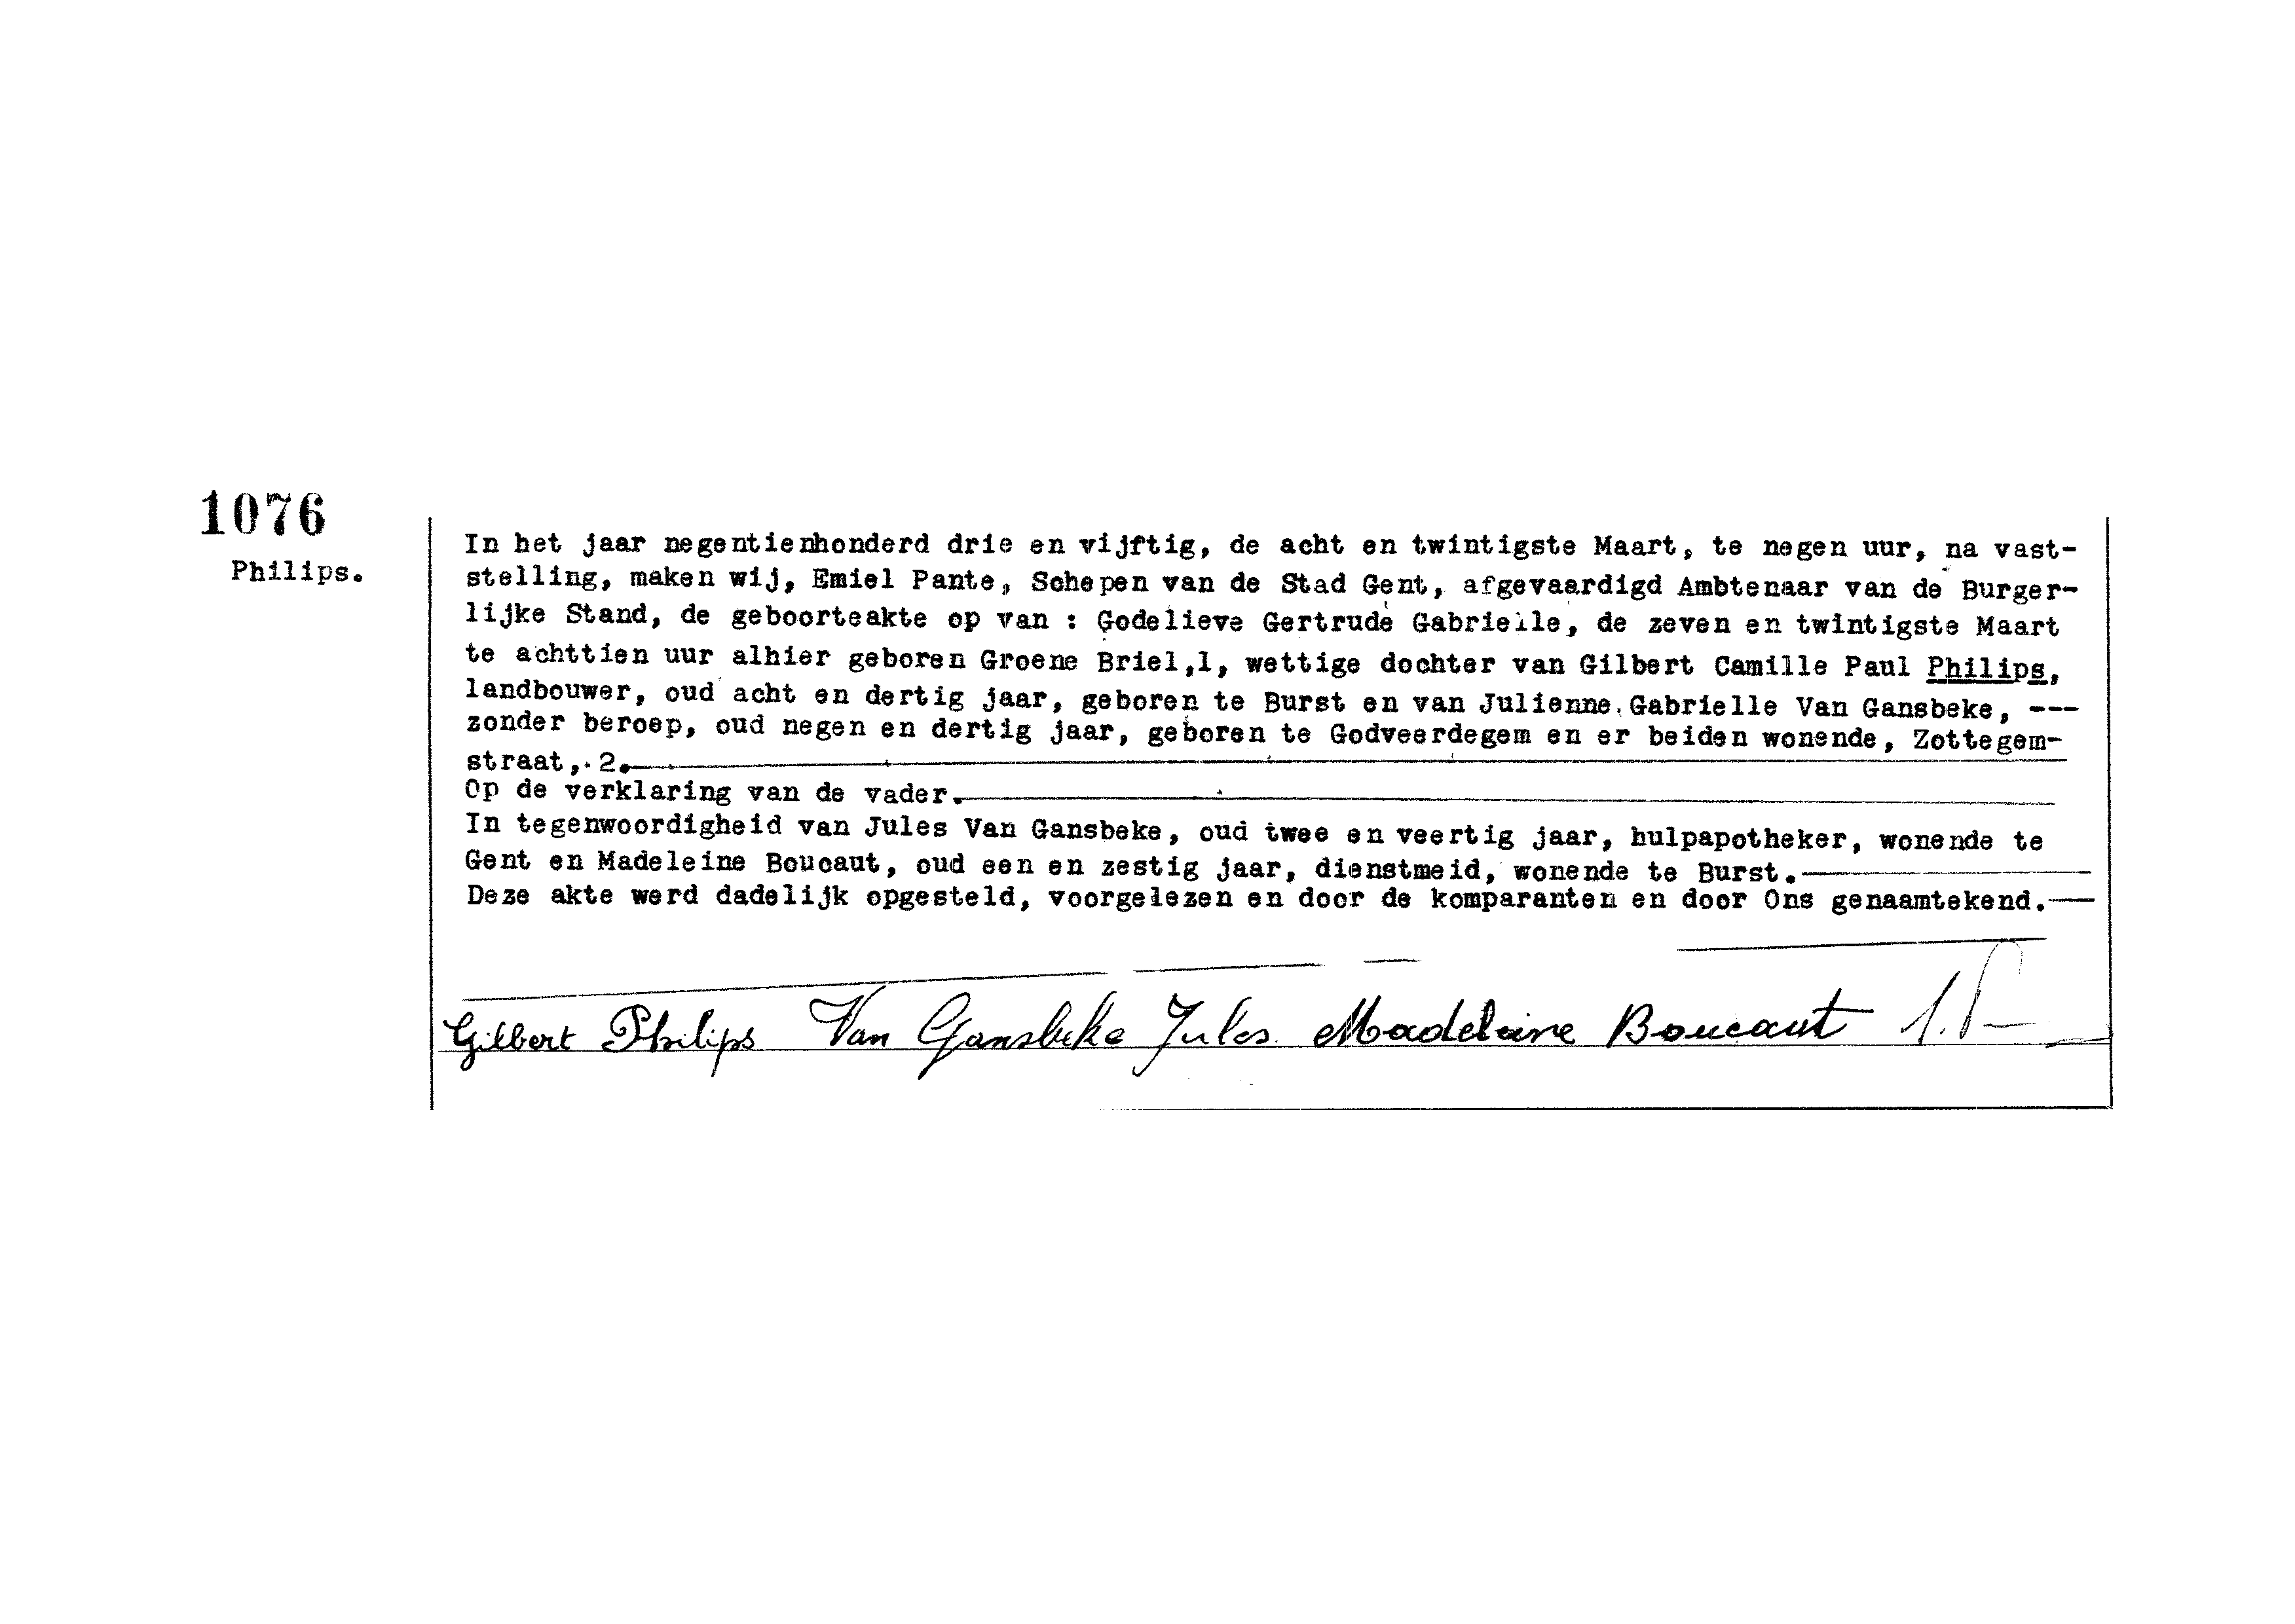 1076
Philips.
In het jaar negentienhonderd drie en vijftig, de acht en twintigste Maart, te negen uur, na vast-
stelling, maken wij, Emiel Pante, Schepen van de Stad Gent, afgevaardigd Ambtenaar van de Burger-
lijke Stand, de geboorteakte op van : Godelieve Gertrude Gabrielle, de zeven en twintigste Maart
te achttien uur alhier geboren Groene Briel,1, wettige dochter van Gilbert Camille Paul Philips,
landbouwer, oud acht en dertig jaar, geboren te Burst en van Julienne Gabrielle Van Gansbeke, ---
zonder beroep, oud negen en dertig jaar, geboren te Godveerdegem en er beiden wonende, Zottegem-
straat, 2.
Op de verklaring van de vader.
In tegenwoordigheid van Jules Van Gansbeke, oud twee en veertig jaar, hulpapotheker, wonende te
Gent en Madeleine Boucaut, oud een en zestig jaar, dienstmeid, wonende te Burst.
Deze akte werd dadelijk opgesteld, voorgelezen en door de komparanten en door Ons genaamtekend.
Gilbert Philips Van Gansbeke Jules Madeleine Boucaut